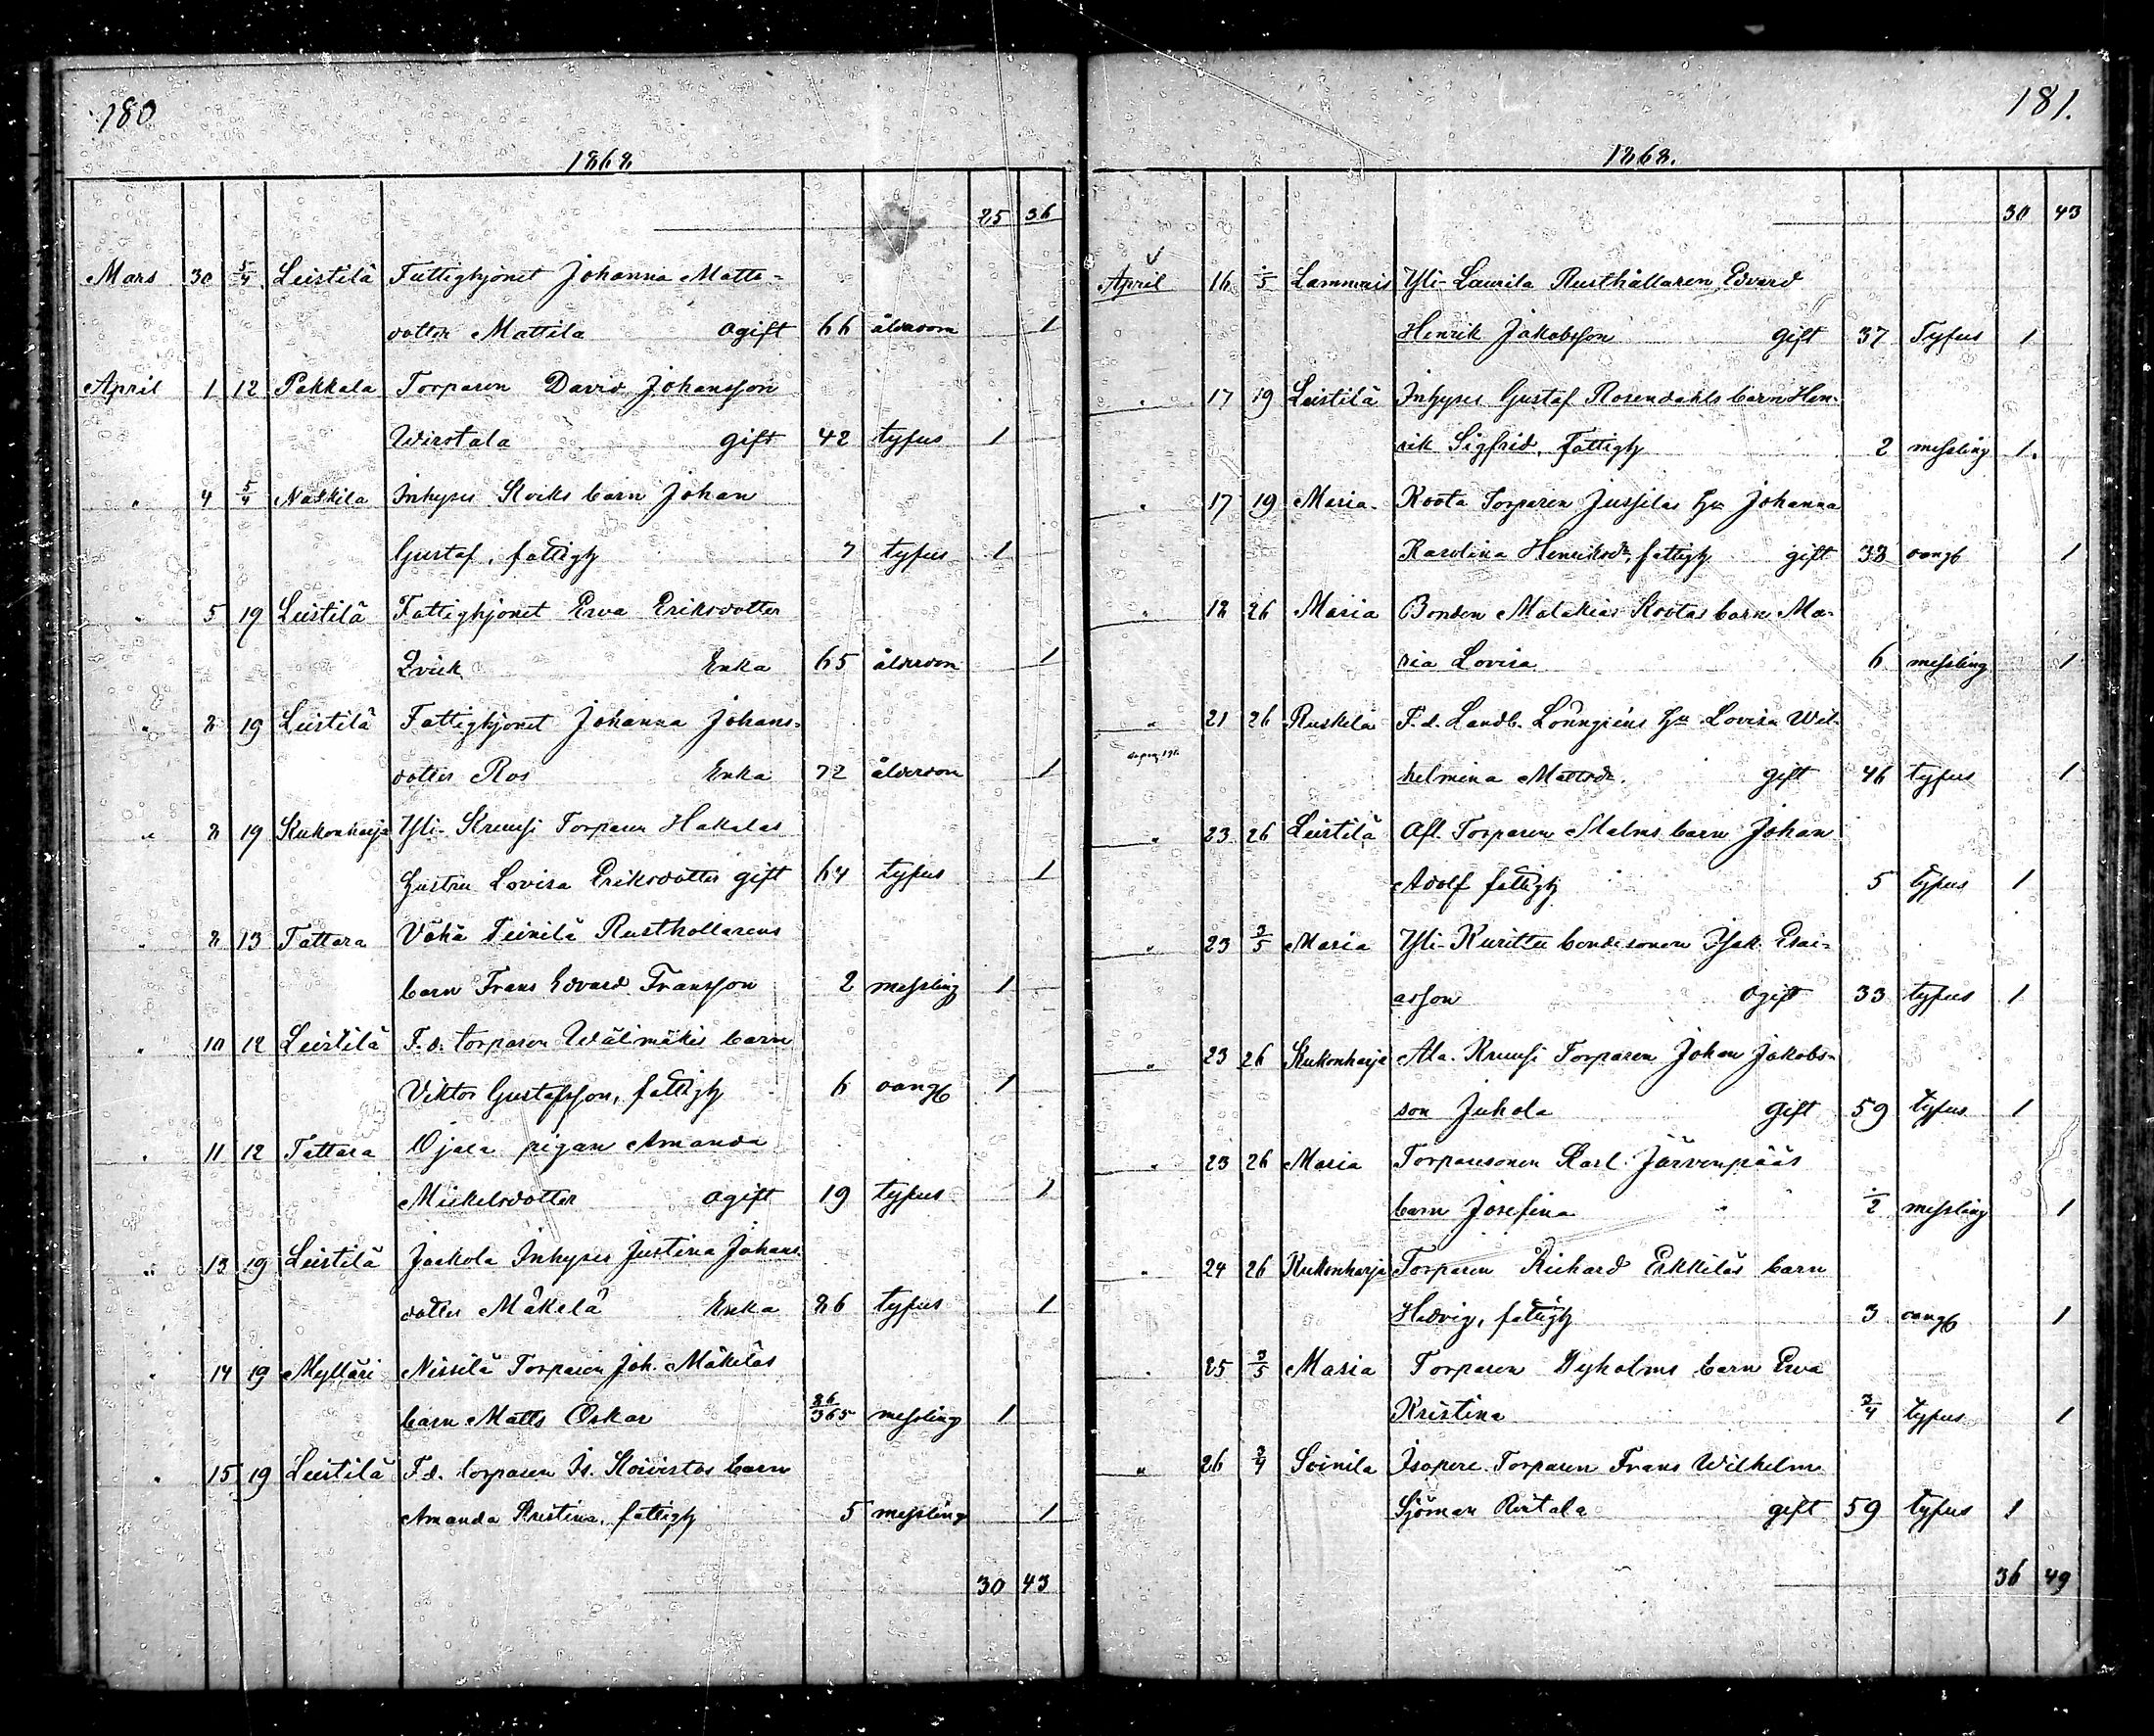 180
1868
25 36
Mars 30 5/4 Leistilä Fattighjonet Johanna Matts-
dotter Mattila ogift 66 ålderdom 1
April 1 12 Pakkala Torparen David Johansson
Wirstala gift 42 tyfus 1
" 4 5/4 Naskila Inhyses Koiks barn Johan
Gustaf, fattigh 7 tyfus 1
" 5 19 Leistilä Fattighjonet Ewa Eriksdotter
Qvick Enka 65 ålderdom 1
" 8 19 Leistilä Fattighjonet Johanna Johans-
dotter Ros Enka 72 ålderdom 1
" 8 19 Kukonharja Yli-Kruusi Torparen Hakalas
hustru Lovisa Eriksdotter gift 64 tyfus 1
" 8 13 Tattara Vähä Teinilä Rusthollarens
barn Frans Edvard Fransson 2 messling 1
" 10 12 Leistilä F.d. torparen Wälimäkis barn
Viktor Gustafsson, fattigh 6 oang 1
" 11 12 Tattara Ojala pigan Amanda
Mickelsdotter ogift 19 tyfus 1
" 13 19 Leistilä Jaakola Inhyses Justina Johans-
dotter Mäkelä Enka 86 tyfus 1
" 14 19 Mylläri Nissilä Torparen Joh. Mäkeläs
barn Matts Oskar 86/365 messling 1
" 15 19 Leistilä F.d. torparen Is. Koivistos barn
Amanda Kristina, fattigh 5 messling 1
30 43
181.
1868.
30 43
April 16 /5 Lammais Yli-Laurila Rusthållaren Edvard
Henrik Jakobsson gift 37 Tyfus 1
" 17 19 Leistilä Inhyses Gustaf Rosendahls barn Hen-
rik Sigfrid, Fattigh 2 messling 1.
" 17 19 Maria Koota Torparen Jussilas Hu Johanna
Karolina Henriksdr, fattigh gift 38 oang 1
" 18 26 Maria Bonden Malakias Kootas barn Ma-
ria Lovisa 6 messling 1
" 21 26 Ruskila F.d. Landb. Lönngrens Hu Lovisa Wil-
helmina Mattsdr. gift 46 tyfus 1
" 23 26 Leistilä Afl. Torparen Malms barn Johan
Adolf fattigh 5 tyfus 1
" 23 3/5 Maria Yli-Kurittu bondesonen Isak Esai-
asson Ogift 33 tyfus 1
" 23 26 Kukonharja Ala-Kruusi Torparen Johan Jakobs-
son Juhola Gift 59 tyfus 1
" 23 26 Maria Torparesonen Karl Järvenpääs
barn Josefina /2 messling 1
" 24 26 Kukonharja Torparen Richard Erkkiläs barn
Hedvig, fattigh 3 oang 1
" 25 3/5 Maria Torparen Dyholms barn Ewa
Kristina 3/4 tyfus 1
" 26 3/4 Soinila Isopere Torparen Frans Wilhelm
Sjöman Rintala gift 59 tyfus 1
36 49